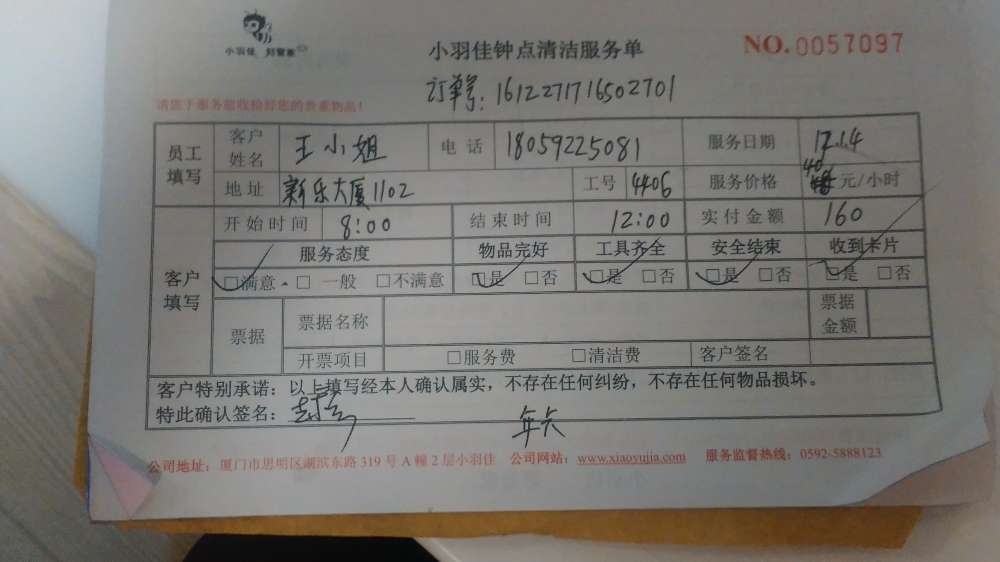 小羽佳 刘管家
小羽佳钟点清洁服务单
NO. 0057097
订单号: 1612271716502701
请您于服务前收检好您的贵重物品!
员工填写 客户姓名 王小姐 电话 18059225081 服务日期 17.1.4
地址 新乐大厦1102 工号 4406 服务价格 40 元/小时
客户填写 开始时间 8:00 结束时间 12:00 实付金额 160
服务态度 物品完好 工具齐全 安全结束 收到卡片
□满意 □一般 □不满意 □是 □否 □是 □否 □是 □否 □是 □否
票据 票据名称 票据金额
开票项目 □服务费 □清洁费 客户签名
客户特别承诺:以上填写经本人确认属实,不存在任何纠纷,不存在任何物品损坏。
特此确认签名:
年卡
公司地址:厦门市思明区湖滨东路 319 号 A 幢 2 层小羽佳 公司网站:www.xiaoyujia.com 服务监督热线:0592-5888123